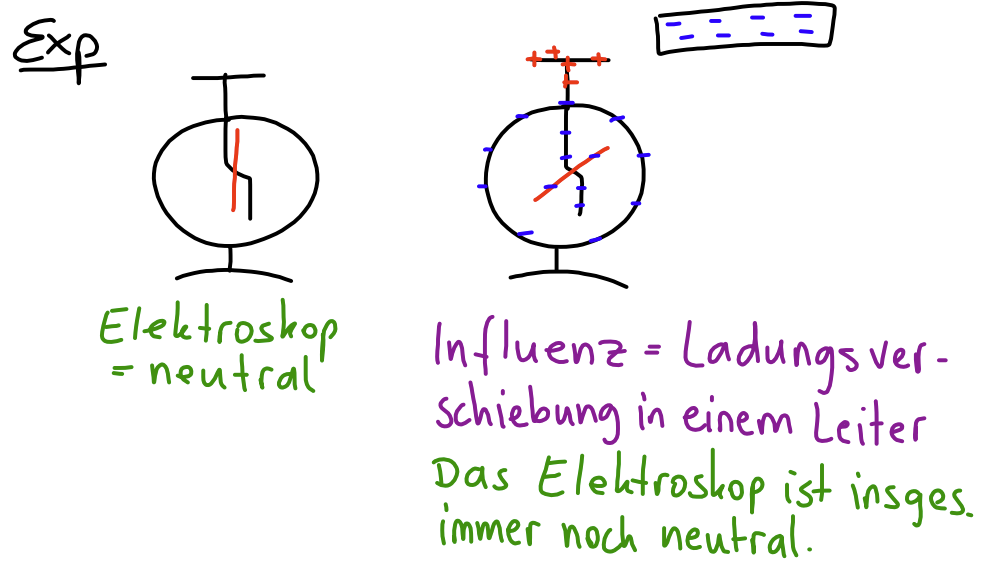 Exp
Elektroskop
= neutral
Influenz = Ladungsver-
schiebung in einem Leiter
Das Elektroskop ist insges.
immer noch neutral.